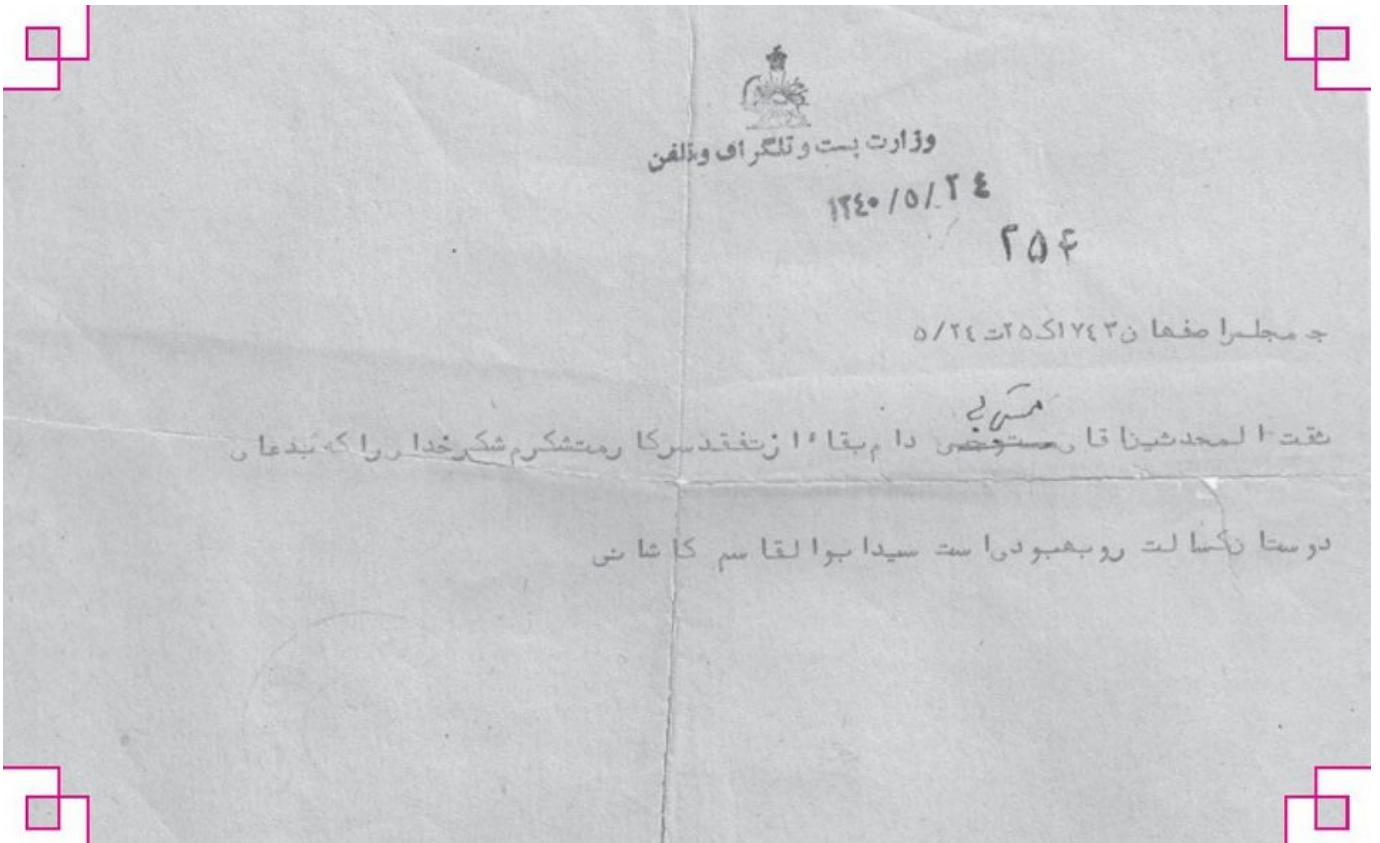 وزارت پست و تلگراف و تلفن
۱۳۴۰/۵/۲۴
۲۵۴
ج مجلس اصفهان ۱۷۴۳ ک ۲۵ ت ۵/۲۴
ثقت المحدثین اقای دام بقائه از تفقد سرکار متشکرم شکر خدای را که بدعای
دوستان کسالت رو بهبودی است سید ابوالقاسم کاشانی